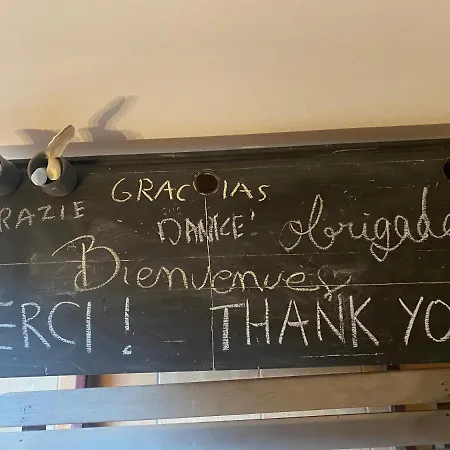 GRACIAS
RAZIE DANKE! Obrigada
Bienvenue
ERCI! THANK YO